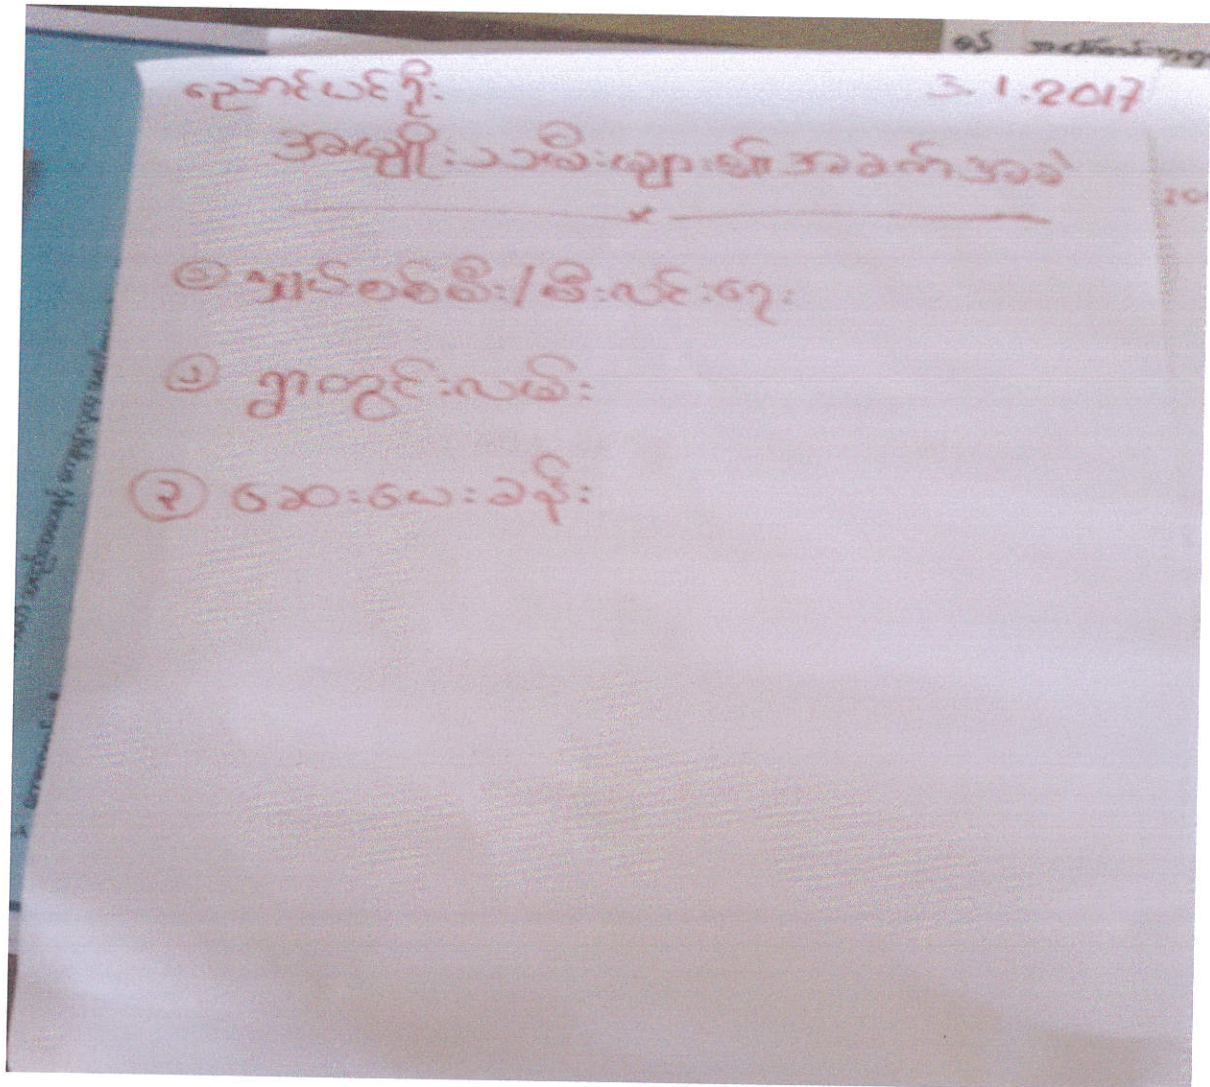 ညောင်ပင်ရိုး 3.1.2017
အမျိုးသမီးများ၏အခက်အခဲ
① လျှပ်စစ်မီး/မီးလင်းရေး
② ရွာတွင်းလမ်း
③ ဆေးပေးခန်း